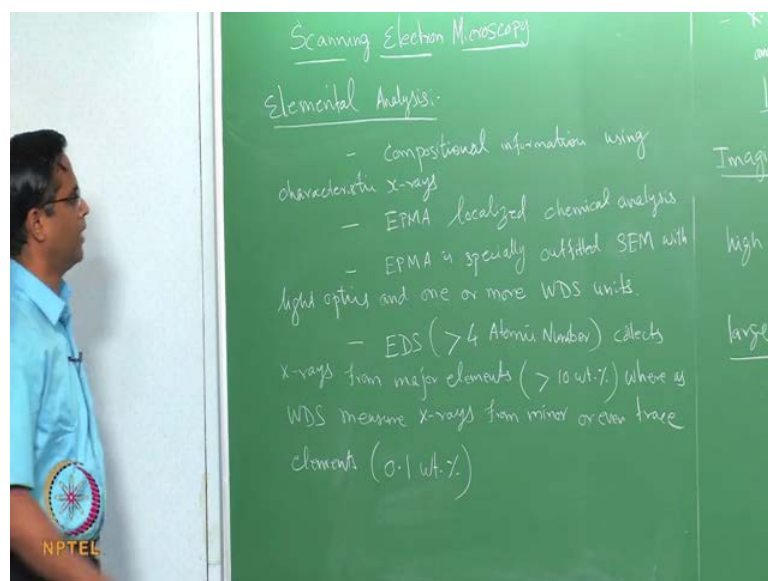 Scanning Electron Microscopy
Elemental Analysis:-
- Compositional information using
characteristic x-rays
- EPMA localized chemical analysis
- EPMA is specially outfitted SEM with
light optics and one or more WDS units.
- EDS (>4 Atomic Number) collects
x-rays from major elements (>10 wt.%) where as
WDS measure x-rays from minor or even trace
elements (0.1 wt.%)
- X-
an
Imagi
high
large
NPTEL